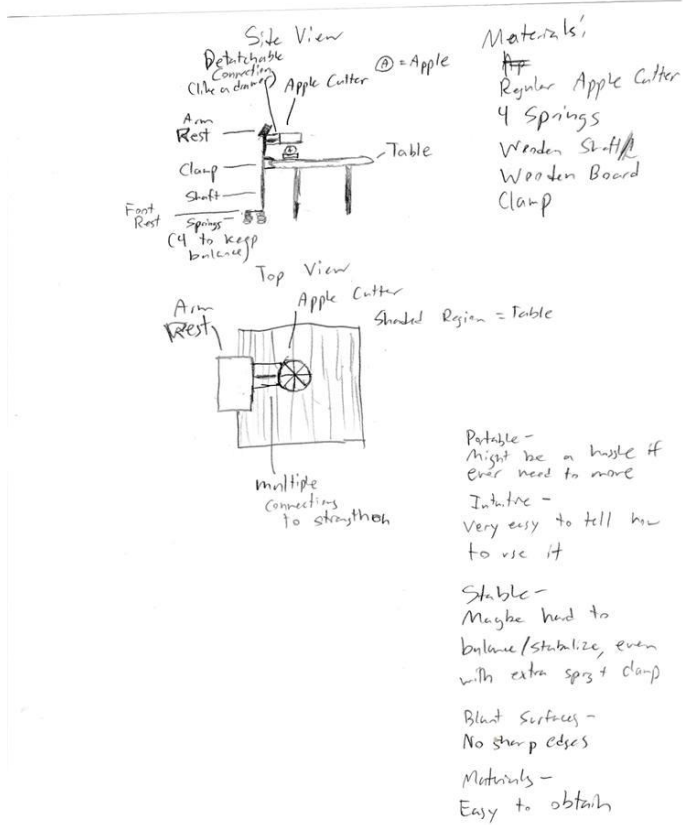 Side View
Detatchable
Connection
(like a drawer)
Apple Cutter
Ⓐ = Apple
Arm
Rest
Table
Clamp
Shaft
Font
Rest
Springs
(4 to keep
balance)
Materials:
Ap
Regular Apple Cutter
4 Springs
Wooden Shaft
Wooden Board
Clamp
Top View
Apple Cutter
Arm
Rest
Shaded Region = Table
multiple
connections
to strengthen
Portable -
Might be a hassle if
ever need to move
Intuitive -
Very easy to tell how
to use it
Stable -
Maybe hard to
balance/stabalize, even
with extra sprg + clamp
Blunt Surfaces -
No sharp edges
Materials -
Easy to obtain